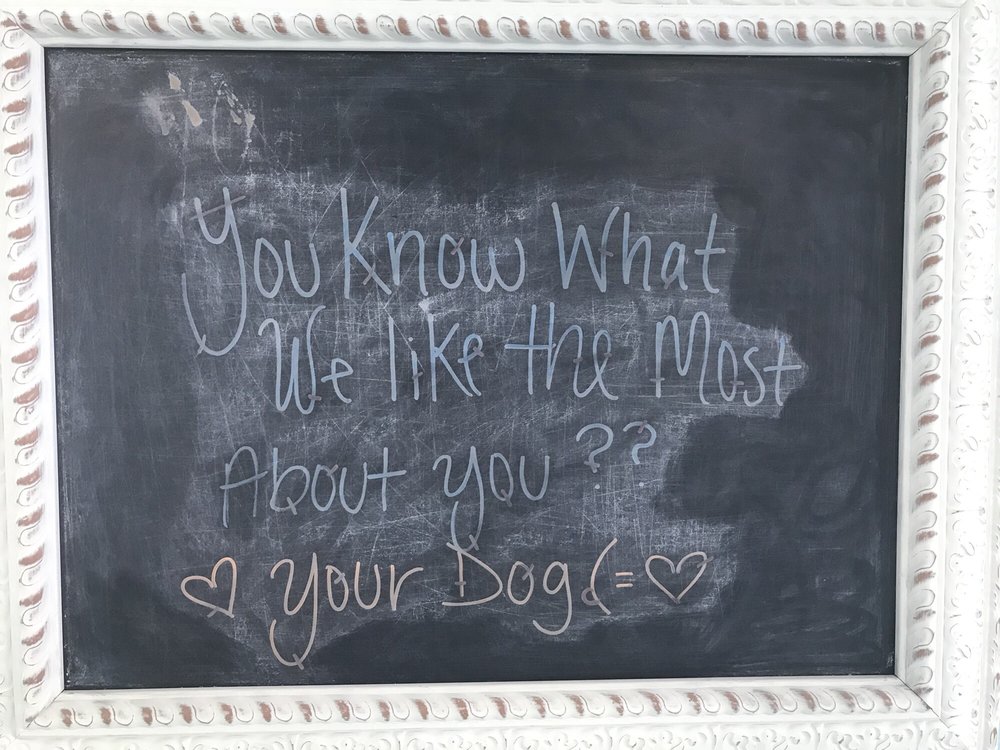 You Know What
We like the Most
About you ??
♡ your Dog (= ♡